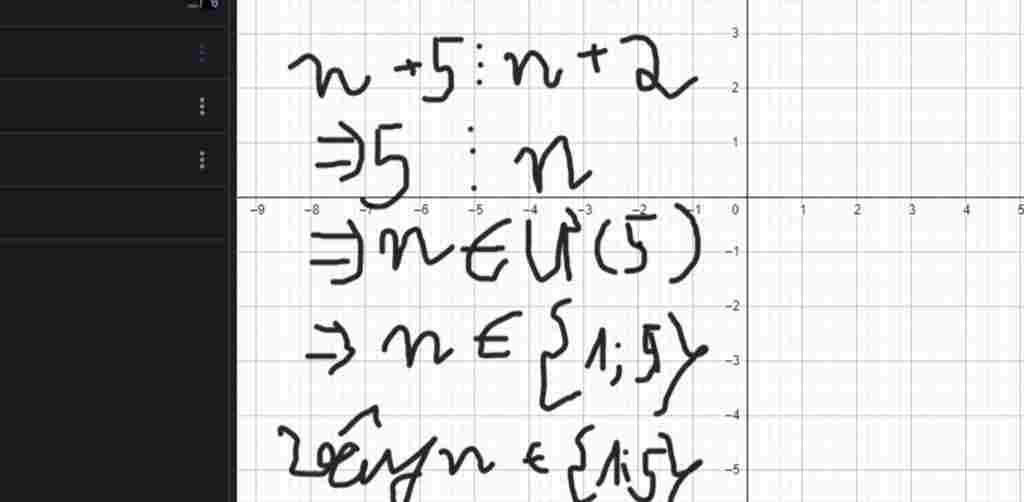 n + 5 ⋮ n + 2
⇒ 5 ⋮ n
⇒ n ∈ Ư(5)
⇒ n ∈ {1; 5}
Vậy n ∈ {1; 5}
3
2
1
-9 -8 -7 -6 -5 -4 -3 -2 -1 0 1 2 3 4 5
-1
-2
-3
-4
-5